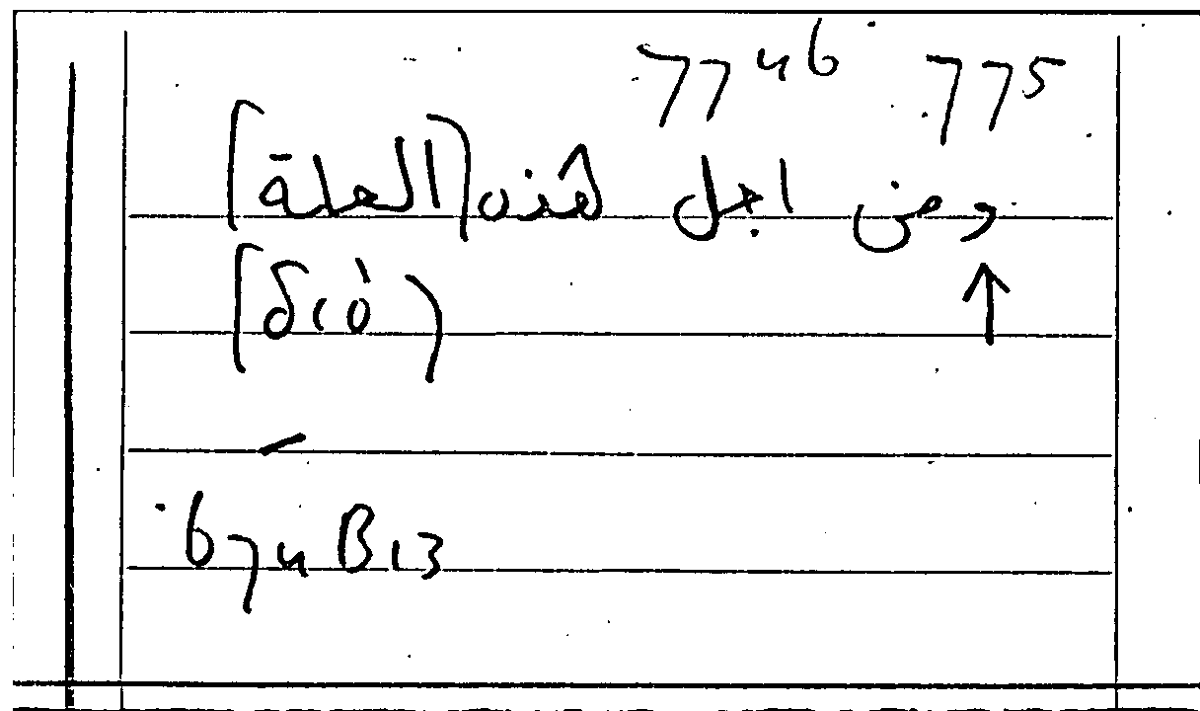 7746 775
ومن اجل هذه (العلة)
(διό)
674B13